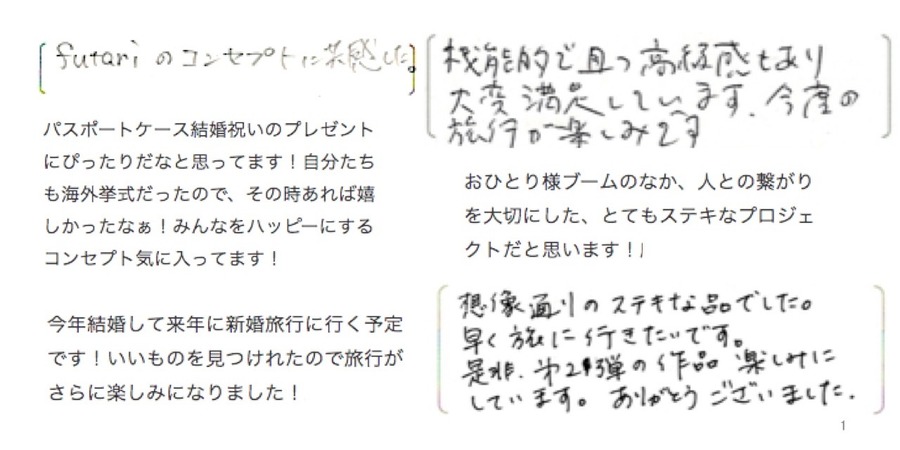 futariのコンセプトに共感した。
パスポートケース結婚祝いのプレゼント
にぴったりだなと思ってます！自分たち
も海外挙式だったので、その時あれば嬉
しかったなぁ！みんなをハッピーにする
コンセプト気に入ってます！
今年結婚して来年に新婚旅行に行く予定
です！いいものを見つけれたので旅行が
さらに楽しみになりました！
機能的で且つ高級感もあり
大変満足しています。今度の
旅行が楽しみです
おひとり様ブームのなか、人との繋がり
を大切にした、とてもステキなプロジェ
クトだと思います！
想像通りのステキな品でした。
早く旅に行きたいです。
是非、第2弾の作品楽しみに
しています。ありがとうございました。
1